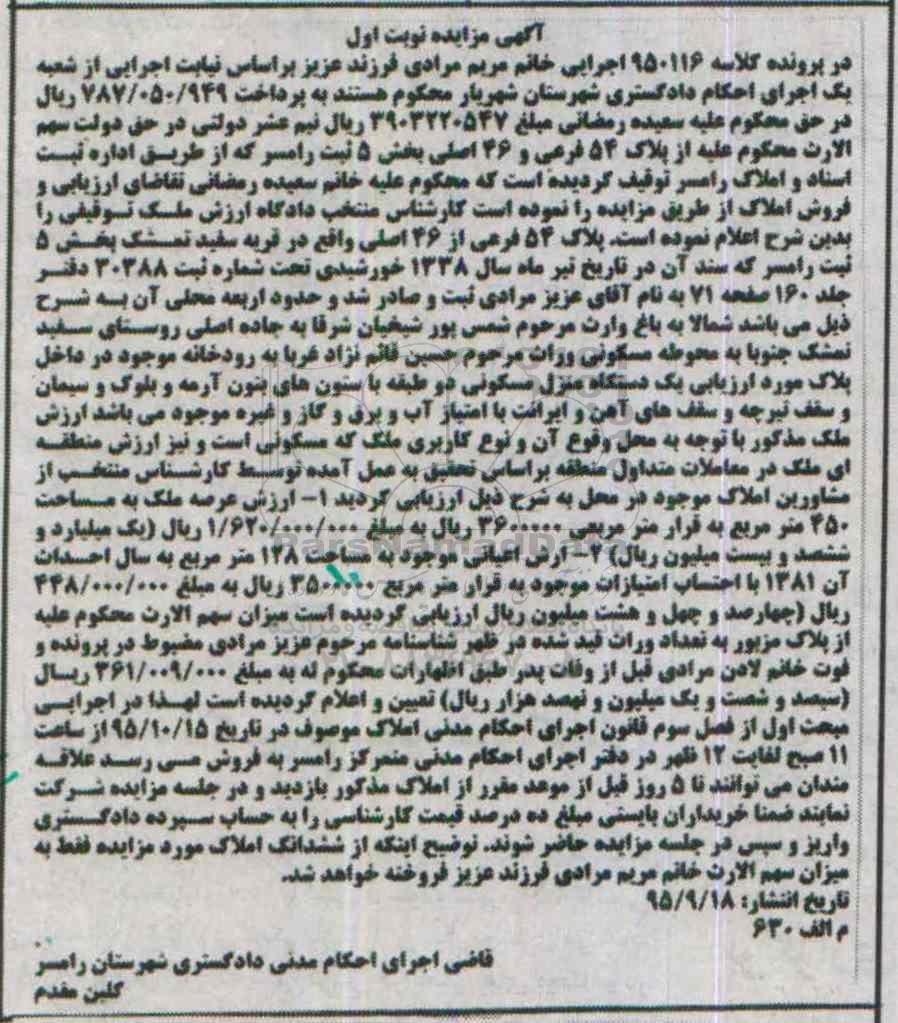 آگهی مزایده نوبت اول
در پرونده کلاسه ۹۵۰۱۱۶ اجرایی خانم مریم مرادی فرزند عزیز براساس نیابت اجرایی از شعبه
یک اجرای احکام دادگستری شهرستان شهریار محکوم هستند به پرداخت ۷۸۷/۰۵۰/۹۴۹ ریال
در حق محکوم علیه سعیده رمضانی مبلغ ۳۹۰۳۲۲۰۵۴۷ ریال نیم عشر دولتی در حق دولت سهم
الارث محکوم علیه از پلاک ۵۴ فرعی و ۴۶ اصلی بخش ۵ ثبت رامسر که از طریق اداره ثبت
اسناد و املاک رامسر توقیف گردیده است که محکوم علیه خانم سعیده رمضانی تقاضای ارزیابی و
فروش املاک از طریق مزایده را نموده است کارشناس منتخب دادگاه ارزش ملک توقیفی را
بدین شرح اعلام نموده است. پلاک ۵۴ فرعی از ۴۶ اصلی واقع در قریه سفید تمشک بخش ۵
ثبت رامسر که سند آن در تاریخ تیر ماه سال ۱۳۳۸ خورشیدی تحت شماره ثبت ۳۰۳۸۸ دفتر
جلد ۱۶۰ صفحه ۷۱ به نام آقای عزیز مرادی ثبت و صادر شد و حدود اربعه محلی آن به شرح
ذیل می باشد شمالا به باغ وارث مرحوم شمس پور شیخیان شرقا به جاده اصلی روستای سفید
تمشک جنوبا به محوطه مسکونی وراث مرحوم حسین قائم نژاد غربا به رودخانه موجود در داخل
پلاک مورد ارزیابی یک دستگاه منزل مسکونی دو طبقه با ستون های بتون آرمه و بلوک و سیمان
و سقف تیرچه و سقف های آهن و ایرانت با امتیاز آب و برق و گاز و غیره موجود می باشد ارزش
ملک مذکور با توجه به محل وقوع آن و نوع کاربری ملک که مسکونی است و نیز ارزش منطقه
ای ملک در معاملات متداول منطقه براساس تحقیق به عمل آمده توسط کارشناس منتخب از
مشاورین املاک موجود در محل به شرح ذیل ارزیابی گردید ۱- ارزش عرصه ملک به مساحت
۴۵۰ متر مربع به قرار متر مربعی ۳۶۰۰۰۰۰ ریال به مبلغ ۱/۶۲۰/۰۰۰/۰۰۰ ریال (یک میلیارد و
ششصد و بیست میلیون ریال) ۲- ارش اعیانی موجود به مساحت ۱۲۸ متر مربع به سال احداث
آن ۱۳۸۱ با احتساب امتیازات موجود به قرار متر مربع ۳۵۰۰۰۰۰ ریال به مبلغ ۴۴۸/۰۰۰/۰۰۰
ریال (چهارصد و چهل و هشت میلیون ریال ارزیابی گردیده است میزان سهم الارث محکوم علیه
از پلاک مزبور به تعداد وراث قید شده در ظهر شناسنامه مرحوم عزیز مرادی مضبوط در پرونده و
فوت خانم لادن مرادی قبل از وفات پدر طبق اظهارات محکوم له به مبلغ ۳۶۱/۰۰۹/۰۰۰ ریال
(سیصد و شصت و یک میلیون و نهصد هزار ریال) تعیین و اعلام گردیده است لهذا در اجرایی
مبحث اول از فصل سوم قانون اجرای احکام مدنی املاک موصوف در تاریخ ۹۵/۱۰/۱۵ از ساعت
۱۱ صبح لغایت ۱۲ ظهر در دفتر اجرای احکام مدنی متمرکز رامسر به فروش می رسد علاقه
مندان می توانند تا ۵ روز قبل از موعد مقرر از املاک مذکور بازدید و در جلسه مزایده شرکت
نمایند ضمنا خریداران بایستی مبلغ ده درصد قیمت کارشناسی را به حساب سپرده دادگستری
واریز و سپس در جلسه مزایده حاضر شوند. توضیح اینکه از ششدانگ املاک مورد مزایده فقط به
میزان سهم الارث خانم مریم مرادی فرزند عزیز فروخته خواهد شد.
تاریخ انتشار: ۹۵/۹/۱۸
م الف ۶۳۰
قاضی اجرای احکام مدنی دادگستری شهرستان رامسر
گلین مقدم
ParsNamadData